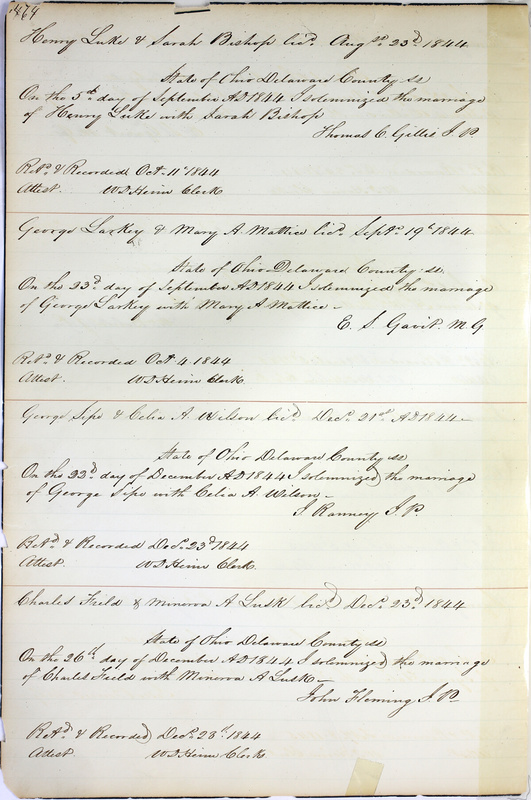 464
Henry Luke & Sarah Bishop lic.d Aug.st 23.d 1844
State of Ohio Delaware County ss
On the 5th day of September AD 1844 I solemnized the marriage
of Henry Luke with Sarah Bishop
Thomas C. Gillis J.P.
Ret.d & Recorded Oct. 11th 1844
Attest. W D Heim Clerk
George Larkey & Mary A. Mattice lic.d Sept.r 19th 1844
State of Ohio Delaware County ss.
On the 23.d day of September AD 1844 I solemnized the marriage
of George Larkey with Mary A. Mattice –
E. S. Gavit. M.G
Ret.d & Recorded Oct 4 1844
Attest. W D Heim Clerk
George Sipe & Celia A. Wilson lic.d Dec.r 21st AD 1844 –
State of Ohio Delaware County ss
On the 22.d day of December AD 1844 I solemnized the marriage
of George Sipe with Celia A Wilson –
S. Ranney J.P.
Ret.d & Recorded Dec.r 23.d 1844
Attest. W D Heim Clerk.
Charles Field & Minerva A Lusk lic.d Dec.r 23.d 1844
State of Ohio Delaware County ss
On the 26th day of December AD 1844 I solemnized the marriage
of Charles Field with Minerva A Lusk –
John Fleming J.P.
Ret.d & Recorded Dec.r 28th 1844
Attest. W D Heim Clerk.